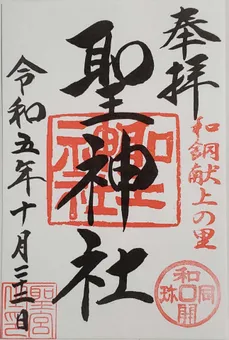 奉拝
和銅献上の里
聖神社
令和五年十月二十三日
聖神社
和同開珎